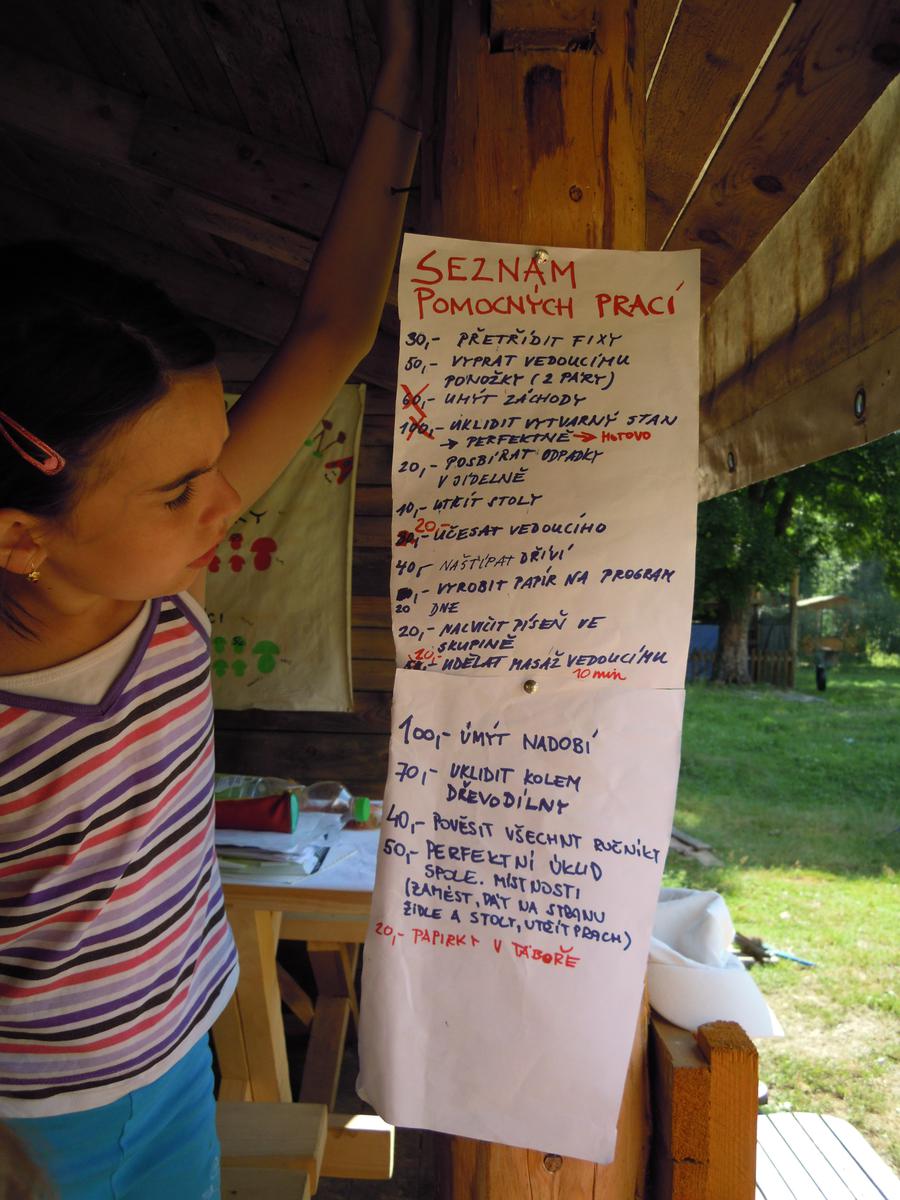 SEZNAM
POMOCNÝCH PRACÍ
30,- PŘETŘÍDIT FIXY
50,- VYPRAT VEDOUCÍMU
PONOŽKY (2 PÁRY)
60,- UMÝT ZÁCHODY
100,- UKLIDIT VÝTVARNÝ STAN
→ PERFEKTNĚ → HOTOVO
20,- POSBÍRAT ODPADKY
V JÍDELNĚ
10,- UTŘÍT STOLY
20,- UČESAT VEDOUCÍHO
40,- NAŠTÍPAT DŘÍVÍ
VYROBIT PAPÍR NA PROGRAM
20 DNE
20,- NACVIČIT PÍSEŇ VE
SKUPINĚ
20,- UDĚLAT MASÁŽ VEDOUCÍMU
10 min
100,- UMÝT NADOBÍ
70,- UKLIDIT KOLEM
DŘEVODÍLNY
40,- POVĚSIT VŠECHNY RUČNÍKY
50,- PERFEKTNÍ ÚKLID
SPOLE. MÍSTNOSTI
(ZAMÉST, DÁT NA STRANU
ŽIDLE A STOLY, UTŘÍT PRACH)
20,- PAPÍRKY V TÁBOŘE